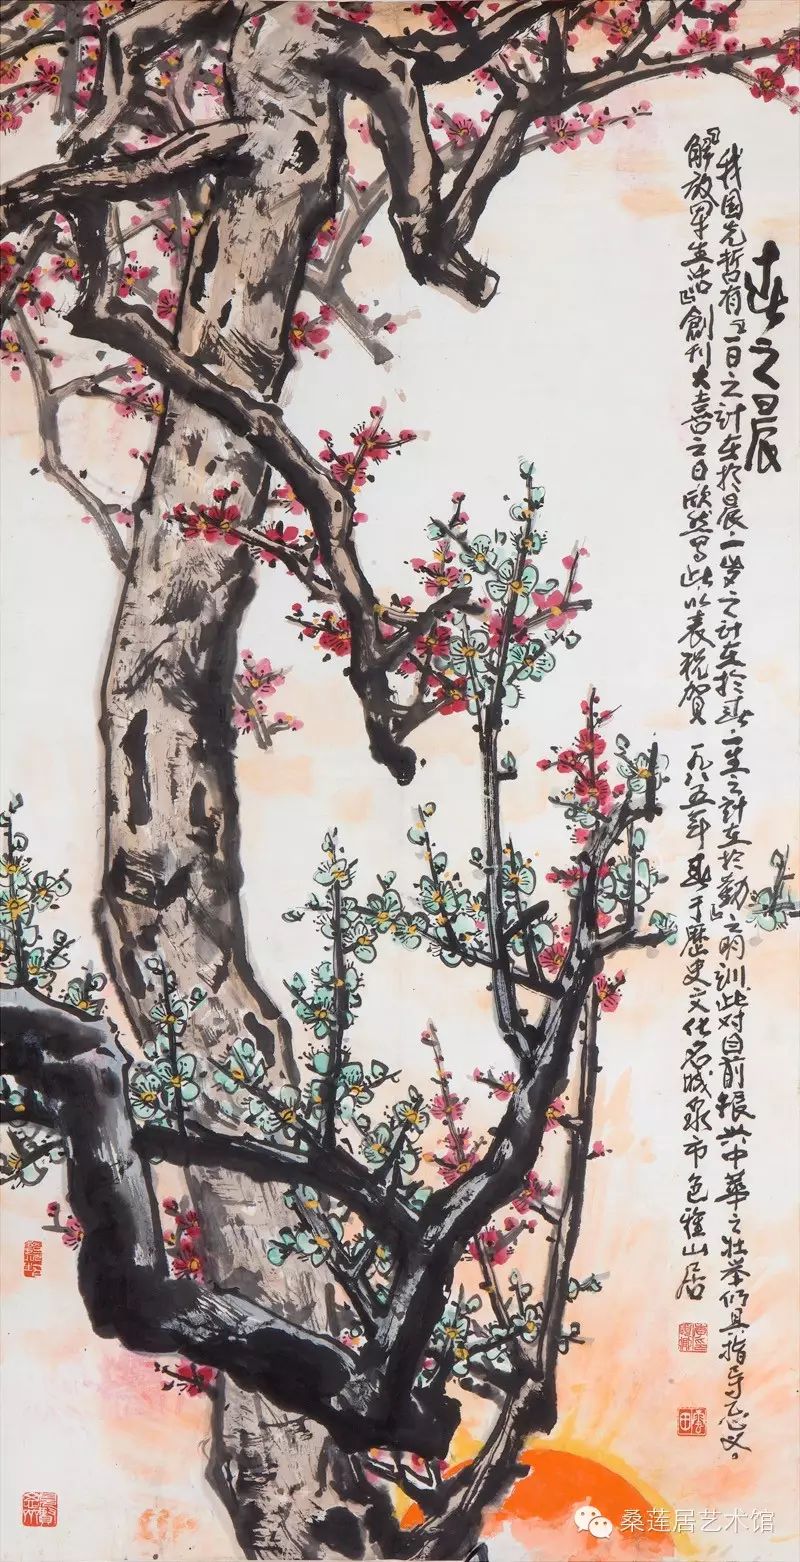 春之晨
我国先哲有“一日之计在於晨，一岁之计在於春，一生之计在於勤”之明训，此对目前振兴中华之壮举仍具指导意义。
《解放军生活》創刊大喜之日欣然写此以表祝贺 一九八五年春于歷史文化名城泉市包雅山居
雲田
桑莲居艺术馆